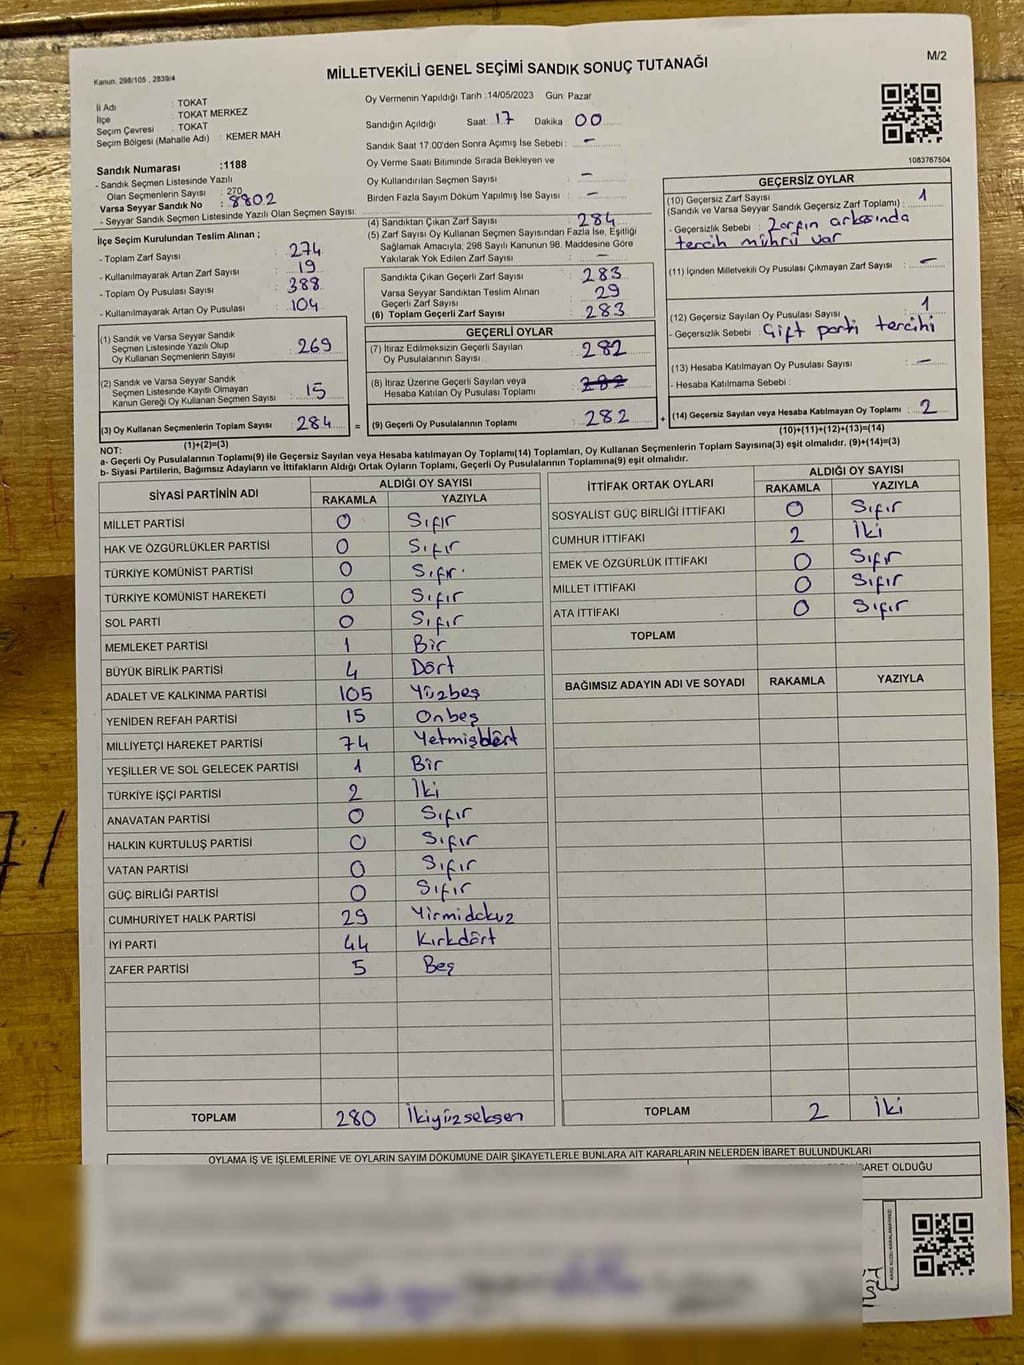 Kanun, 298/105 , 2839/4
MİLLETVEKİLİ GENEL SEÇİMİ SANDIK SONUÇ TUTANAĞI
M/2
İl Adı : TOKAT
İlçe : TOKAT MERKEZ
Seçim Çevresi : TOKAT
Seçim Bölgesi (Mahalle Adı) : KEMER MAH
Sandık Numarası :1188
- Sandık Seçmen Listesinde Yazılı
Olan Seçmenlerin Sayısı : 270
Varsa Seyyar Sandık No : 8802
- Seyyar Sandık Seçmen Listesinde Yazılı Olan Seçmen Sayısı:
İlçe Seçim Kurulundan Teslim Alınan ;
- Toplam Zarf Sayısı : 274
- Kullanılmayarak Artan Zarf Sayısı : 19
- Toplam Oy Pusulası Sayısı : 388
- Kullanılmayarak Artan Oy Pusulası : 104
(1) Sandık ve Varsa Seyyar Sandık
Seçmen Listesinde Yazılı Olup
Oy Kullanan Seçmenlerin Sayısı : 269
(2) Sandık ve Varsa Seyyar Sandık
Seçmen Listesinde Kayıtlı Olmayan
Kanun Gereği Oy Kullanan Seçmen Sayısı : 15
(3) Oy Kullanan Seçmenlerin Toplam Sayısı : 284 =
(1)+(2)=(3)
Oy Vermenin Yapıldığı Tarih :14/05/2023 Gün Pazar
Sandığın Açıldığı Saat: 17 Dakika 00
Sandık Saat 17:00'den Sonra Açımış İse Sebebi : -
Oy Verme Saati Bitiminde Sırada Bekleyen ve
Oy Kullandırılan Seçmen Sayısı -
Birden Fazla Sayım Döküm Yapılmış İse Sayısı : -
(4) Sandıktan Çıkan Zarf Sayısı : 284
(5) Zarf Sayısı Oy Kullanan Seçmen Sayısından Fazla İse, Eşitliği
Sağlamak Amacıyla, 298 Sayılı Kanunun 98. Maddesine Göre
Yakılarak Yok Edilen Zarf Sayısı : -
Sandıkta Çıkan Geçerli Zarf Sayısı : 283
Varsa Seyyar Sandıktan Teslim Alınan
Geçerli Zarf Sayısı : 29
(6) Toplam Geçerli Zarf Sayısı : 283
GEÇERLİ OYLAR
(7) İtiraz Edilmeksizin Geçerli Sayılan
Oy Pusulalarının Sayısı : 282
(8) İtiraz Üzerine Geçerli Sayılan veya
Hesaba Katılan Oy Pusulası Toplamı : 282
(9) Geçerli Oy Pusulalarının Toplamı : 282 +
1083767504
GEÇERSİZ OYLAR
(10) Geçersiz Zarf Sayısı
(Sandık ve Varsa Seyyar Sandık Geçersiz Zarf Toplamı) : 1
- Geçersizlik Sebebi : Zarfın arkasında
tercih mührü var
(11) İçinden Milletvekili Oy Pusulası Çıkmayan Zarf Sayısı : -
(12) Geçersiz Sayılan Oy Pusulası Sayısı : 1
- Geçersizlik Sebebi : Çift parti tercihi
(13) Hesaba Katılmayan Oy Pusulası Sayısı : -
- Hesaba Katılmama Sebebi :
(14) Geçersiz Sayılan veya Hesaba Katılmayan Oy Toplamı : 2
(10)+(11)+(12)+(13)=(14)
NOT:
a- Geçerli Oy Pusulalarının Toplamı(9) ile Geçersiz Sayılan veya Hesaba katılmayan Oy Toplamı(14) Toplamları, Oy Kullanan Seçmenlerin Toplam Sayısına(3) eşit olmalıdır. (9)+(14)=(3)
b- Siyasi Partilerin, Bağımsız Adayların ve İttifakların Aldığı Ortak Oyların Toplamı, Geçerli Oy Pusulalarının Toplamına(9) eşit olmalıdır.
SİYASİ PARTİNİN ADI ALDIĞI OY SAYISI
RAKAMLA YAZIYLA
MİLLET PARTİSİ 0 Sıfır
HAK VE ÖZGÜRLÜKLER PARTİSİ 0 Sıfır
TÜRKİYE KOMÜNİST PARTİSİ 0 Sıfır
TÜRKİYE KOMÜNİST HAREKETİ 0 Sıfır
SOL PARTİ 0 Sıfır
MEMLEKET PARTİSİ 1 Bir
BÜYÜK BİRLİK PARTİSİ 4 Dört
ADALET VE KALKINMA PARTİSİ 105 Yüzbeş
YENİDEN REFAH PARTİSİ 15 Onbeş
MİLLİYETÇİ HAREKET PARTİSİ 74 Yetmişdört
YEŞİLLER VE SOL GELECEK PARTİSİ 1 Bir
TÜRKİYE İŞÇİ PARTİSİ 2 İki
ANAVATAN PARTİSİ 0 Sıfır
HALKIN KURTULUŞ PARTİSİ 0 Sıfır
VATAN PARTİSİ 0 Sıfır
GÜÇ BİRLİĞİ PARTİSİ 0 Sıfır
CUMHURİYET HALK PARTİSİ 29 Yirmidokuz
İYİ PARTİ 44 Kırkdört
ZAFER PARTİSİ 5 Beş
TOPLAM 280 İkiyüzseksen
İTTİFAK ORTAK OYLARI ALDIĞI OY SAYISI
RAKAMLA YAZIYLA
SOSYALİST GÜÇ BİRLİĞİ İTTİFAKI 0 Sıfır
CUMHUR İTTİFAKI 2 İki
EMEK VE ÖZGÜRLÜK İTTİFAKI 0 Sıfır
MİLLET İTTİFAKI 0 Sıfır
ATA İTTİFAKI 0 Sıfır
TOPLAM
BAĞIMSIZ ADAYIN ADI VE SOYADI RAKAMLA YAZIYLA
TOPLAM 2 İki
OYLAMA İŞ VE İŞLEMLERİNE VE OYLARIN SAYIM DÖKÜMÜNE DAİR ŞİKAYETLERLE BUNLARA AİT KARARLARIN NELERDEN İBARET BULUNDUKLARI
BARET OLDUĞU